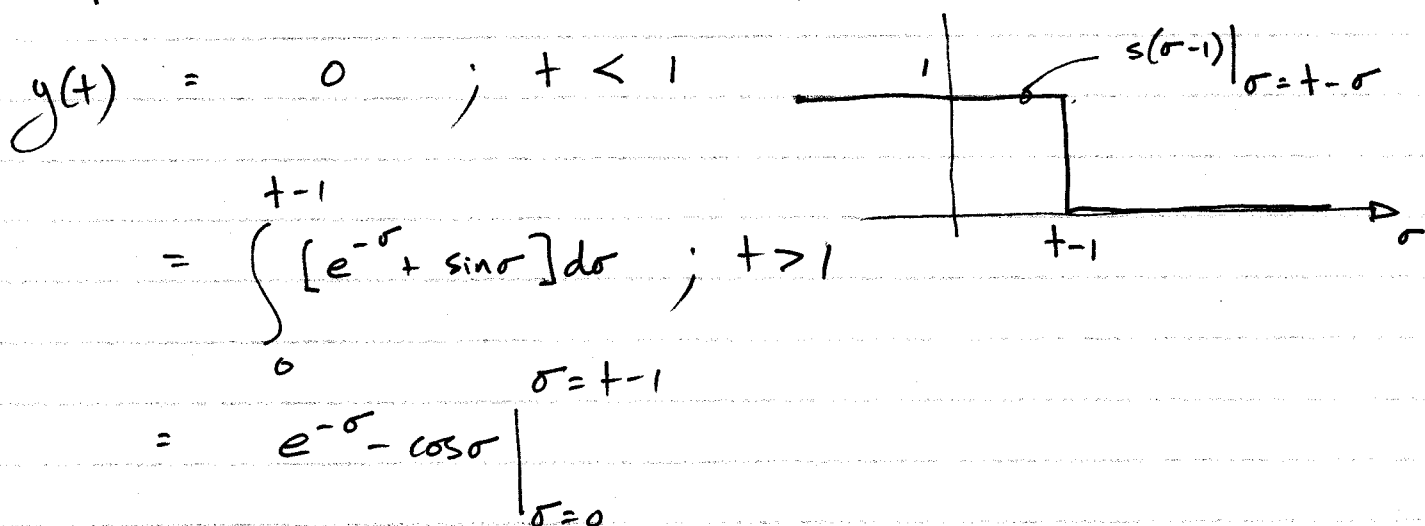 y(t) = 0 ; t < 1
1 s(σ-1)|σ=t-σ
t-1 σ
= ∫₀ᵗ⁻¹ [e^-σ + sinσ]dσ ; t > 1
= e^-σ - cosσ |σ=0 σ=t-1